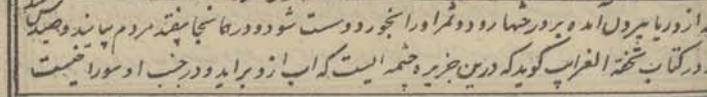 از دریا بیرون آمده بر درختها رود و ثمر او را بخورد و مست شود و در همانجا بیفتد مردم بیایند و صیدش
و در کتاب تحفة الغرایب گوید که درین جزیره چشمه ایست که اب ازو براید و در جنب او سوراخیست